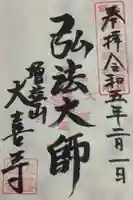 奉拝 令和五年二月一日
弘法大師
増益山
大喜寺